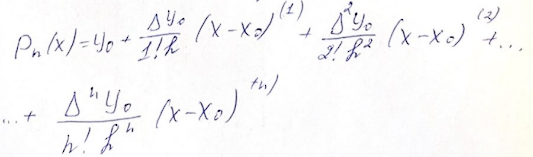 Pₙ(x) = y₀ + Δy₀/(1!h) (x-x₀)⁽¹⁾ + Δ²y₀/(2!h²) (x-x₀)⁽²⁾ + ...
... + Δⁿy₀/(n!hⁿ) (x-x₀)⁽ⁿ⁾